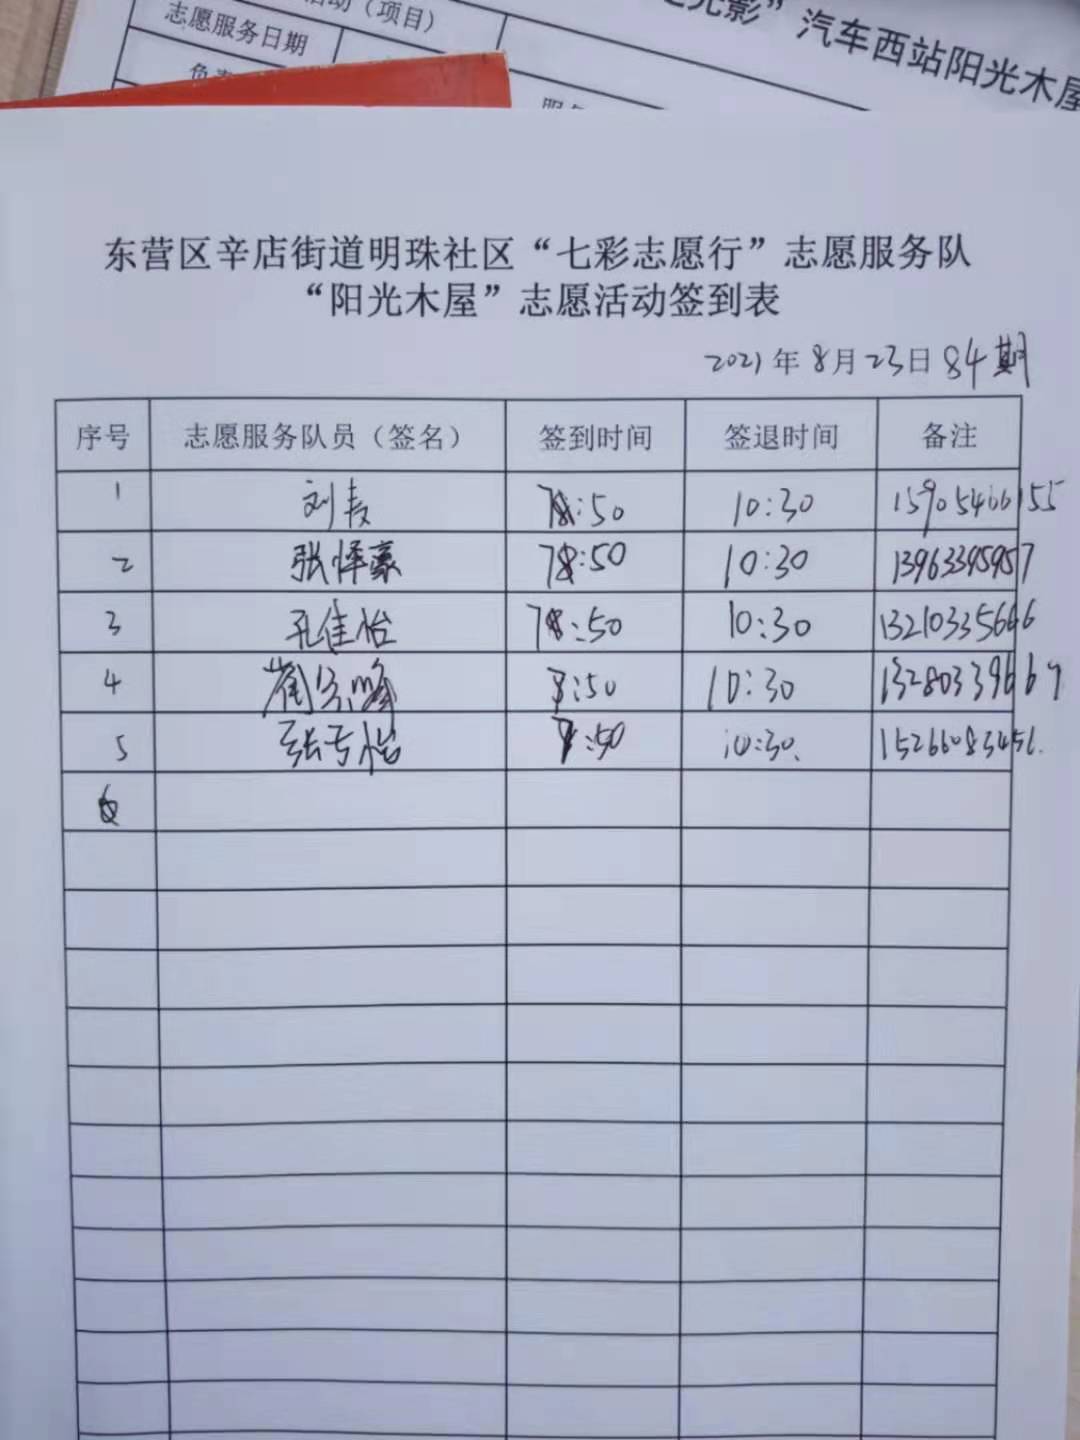 活动（项目）
志愿服务日期
光影”汽车西站阳光木屋
东营区辛店街道明珠社区“七彩志愿行”志愿服务队
“阳光木屋”志愿活动签到表
2021年8月23日84期
序号 志愿服务队员（签名） 签到时间 签退时间 备注
1 刘 :50 10:30 15905466155
2 张泽豪 :50 10:30 13963395957
3 孔佳怡 :50 10:30 13210335666
4 :50 10:30
5 张 怡 :50 10:30
6